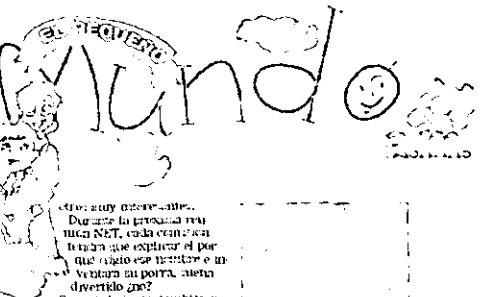 EL PEQUEÑO
Mundo
muy interesantes.
Durante la próxima reu
nión NET, cada comisión
tendrá que explicar el por
qué eligió ese nombre e in
ventará su porra, suena
divertido ¿no?